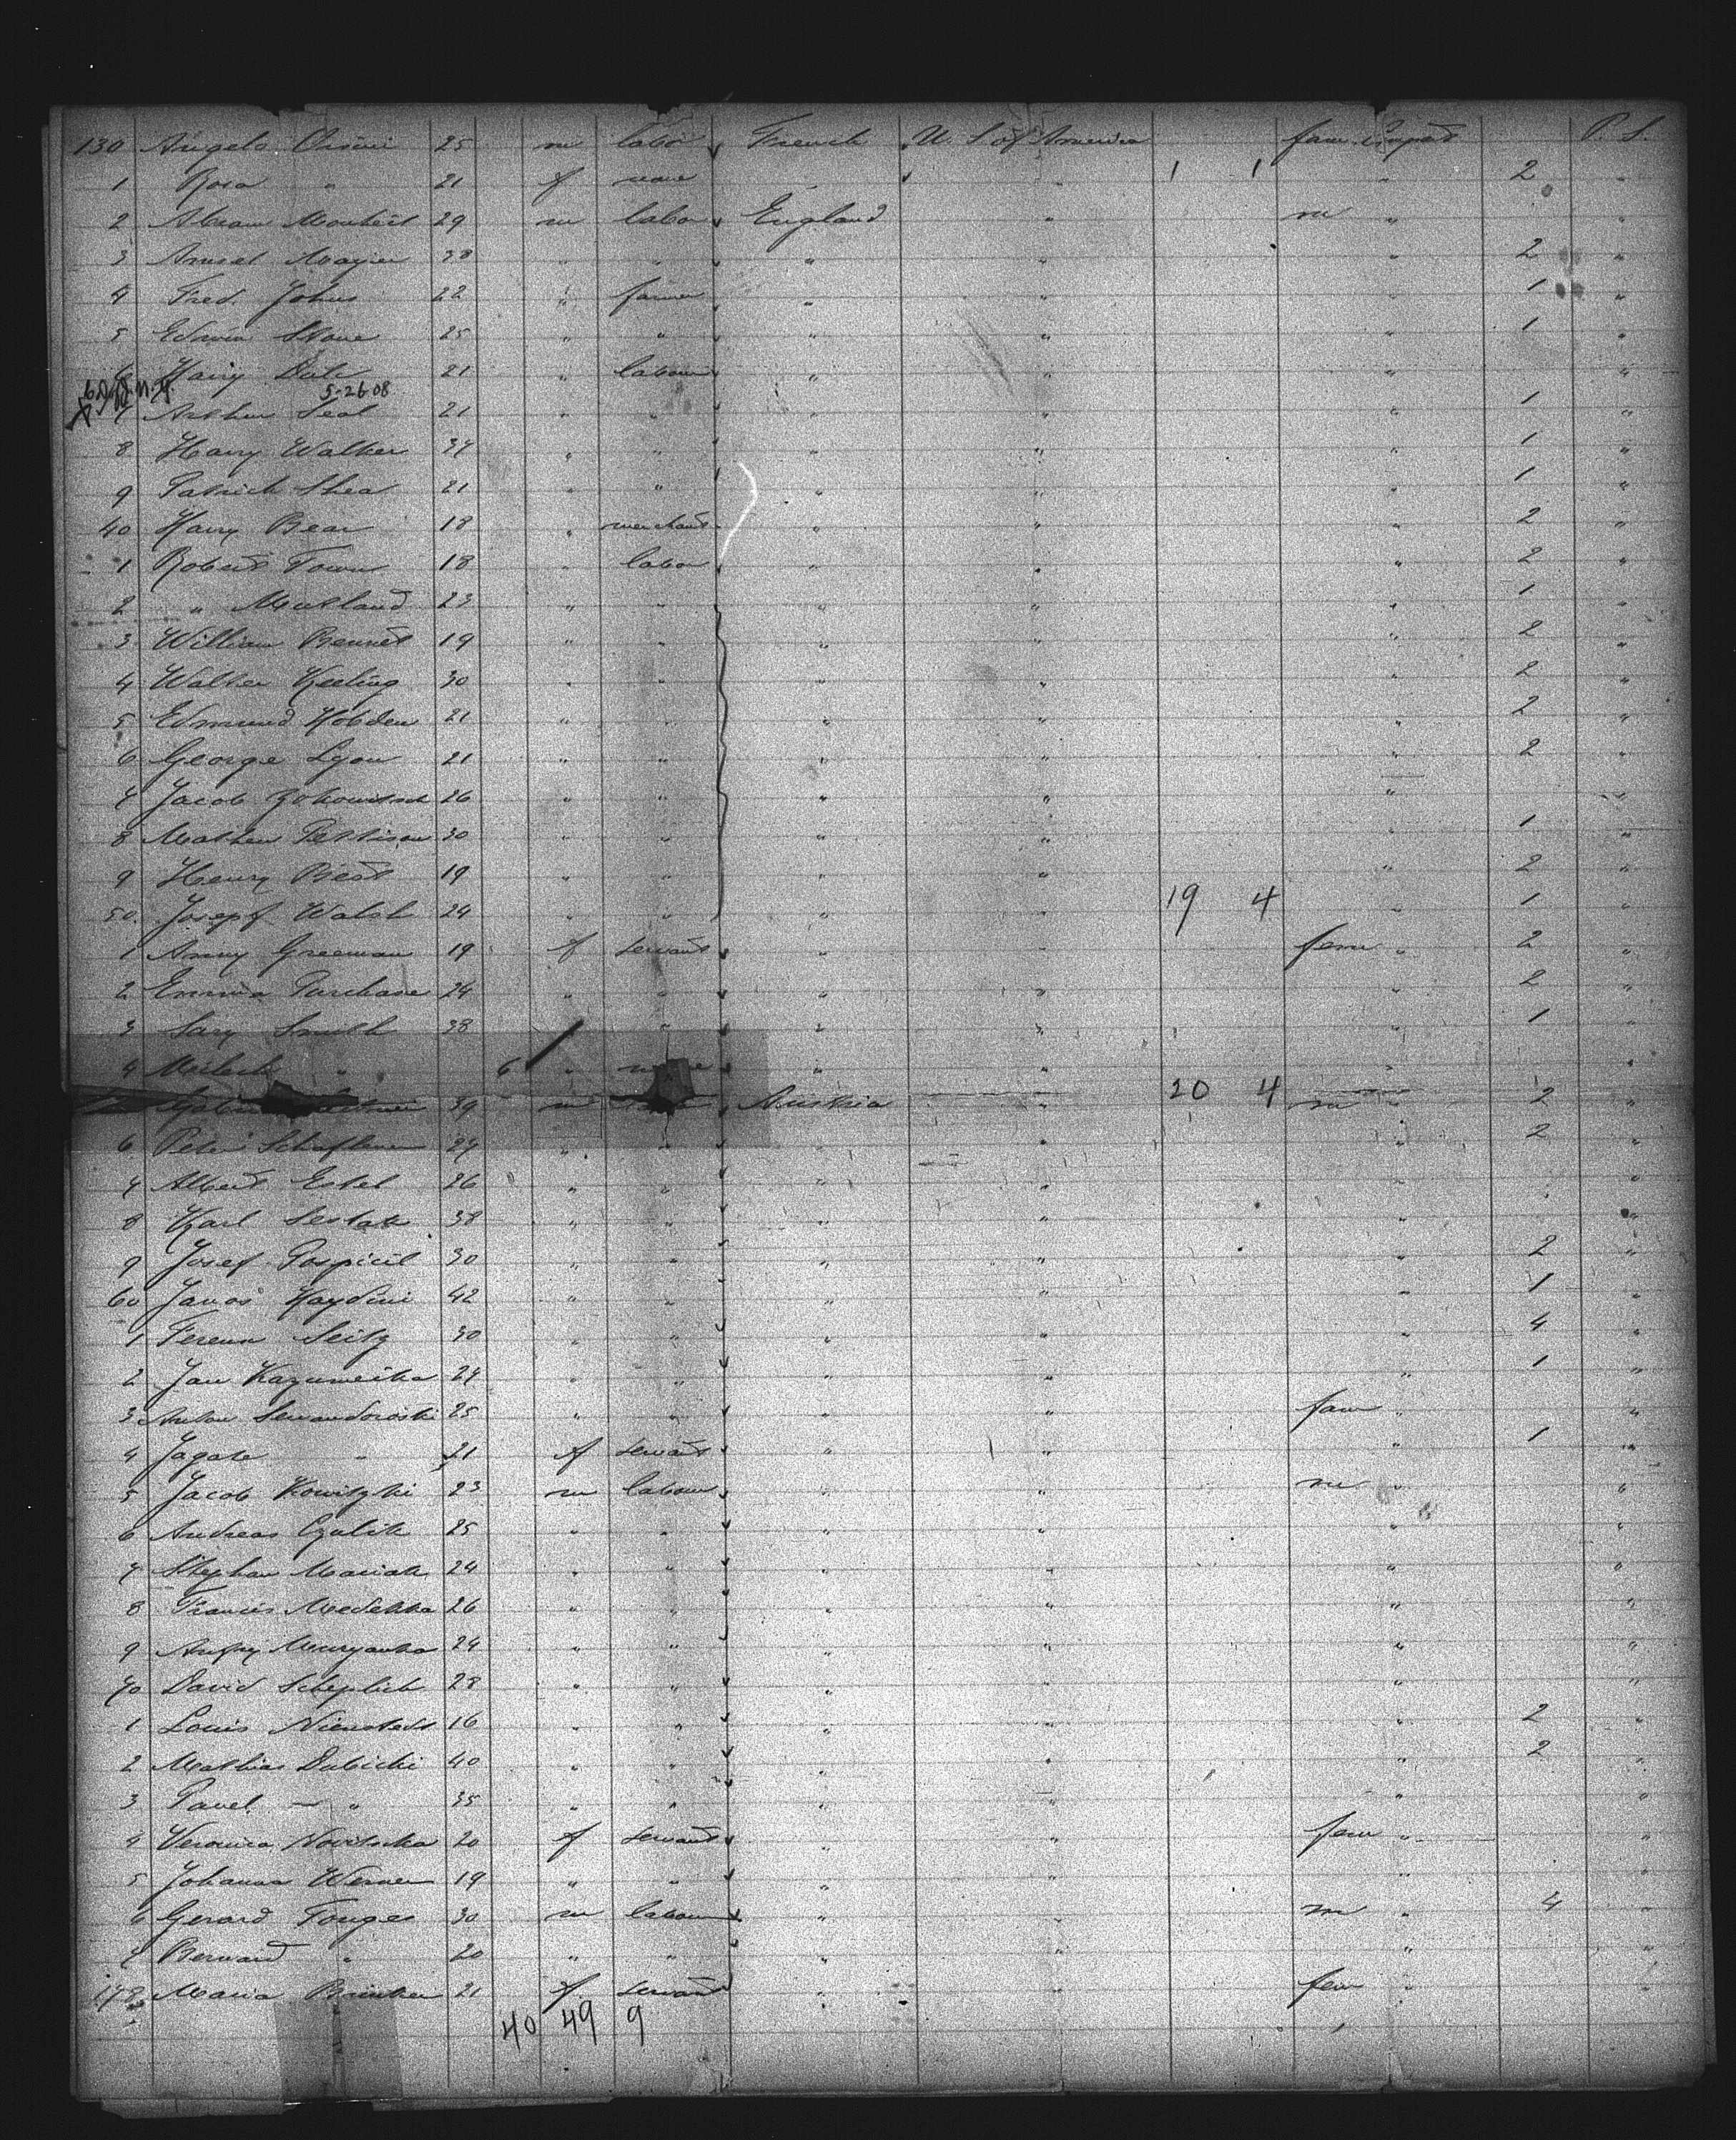 130 Angelo Orsini 25 m labor French U. S. of America fam. P. S.
1 Rosa " 21 f none " 1 1 " 2 "
2 Abram 29 m labor England " m " "
3 Amsel 38 " " " " " 2 "
4 Fred. Johns 22 " farmer " " " 1 "
5 Edwin Stone 25 " " " " " 1 "
6 Harry Dale 21 " labour " " " "
5-26-08
7 Arthur Seal 21 " " " " " 1 "
8 Harry Walker 37 " " " " " 1 "
9 Patrick Shea 21 " " " " " 1 "
40 Harry Bear 18 " merchant " " " 2 "
1 Robert Town 18 " labor " " " 2 "
2 " 23 " " " " " 1 "
3 William Bennet 19 " " " " " 2 "
4 Walter Keeling 30 " " " " " 2 "
5 Edmund Hobden 21 " " " " " 2 "
6 George Lyon 21 " " " " " 2 "
7 Jacob 26 " " " " " "
8 Mathew Pettison 30 " " " " " 1 "
9 Henry Best 19 " " " " " 2 "
50 Josepf Walsh 24 " " " " 19 4 " 1 "
1 Anny Greeman 19 f servant " " fem " 2 "
2 Emma Purchase 24 " " " " " 2 "
3 Sary Smith 38 " " " " " 1 "
4 " 6 " " " " "
39 m Austria " 20 4 m " 2 "
6 Peter 27 " " " " " 2 "
7 Albert Estel 26 " " " " " "
8 Karl Sestak 38 " " " " " "
9 Josef Pospicil 30 " " " " " 2 "
60 Janos 42 " " " " " 1 "
1 Ferenn Seitz 30 " " " " " 4 "
2 Jan 24 " " " " " 1 "
3 Anton 25 " " " " fam " "
4 Jagate " 21 f servant " " " 1 "
5 Jacob Kowitzki 23 m labour " " m " "
6 Andreas Czulik 25 " " " " " "
7 Stephan Mariak 24 " " " " " "
8 Francis 26 " " " " " "
9 24 " " " " " "
70 David Scheplich 28 " " " " " "
1 Louis Nienstedt 16 " " " " " 2 "
2 Mathias Dubicki 40 " " " " " 2 "
3 Pavel " 35 " " " " " "
4 Veronica Novitscka 20 f servant " " fem " "
5 Johanna Werner 19 " " " " " "
6 Gerard Tonges 30 m labour " " m " 4 "
7 Bernard " 20 " " " " " "
178 Maria Brinker 21 f servant " " fem " "
40 49 9